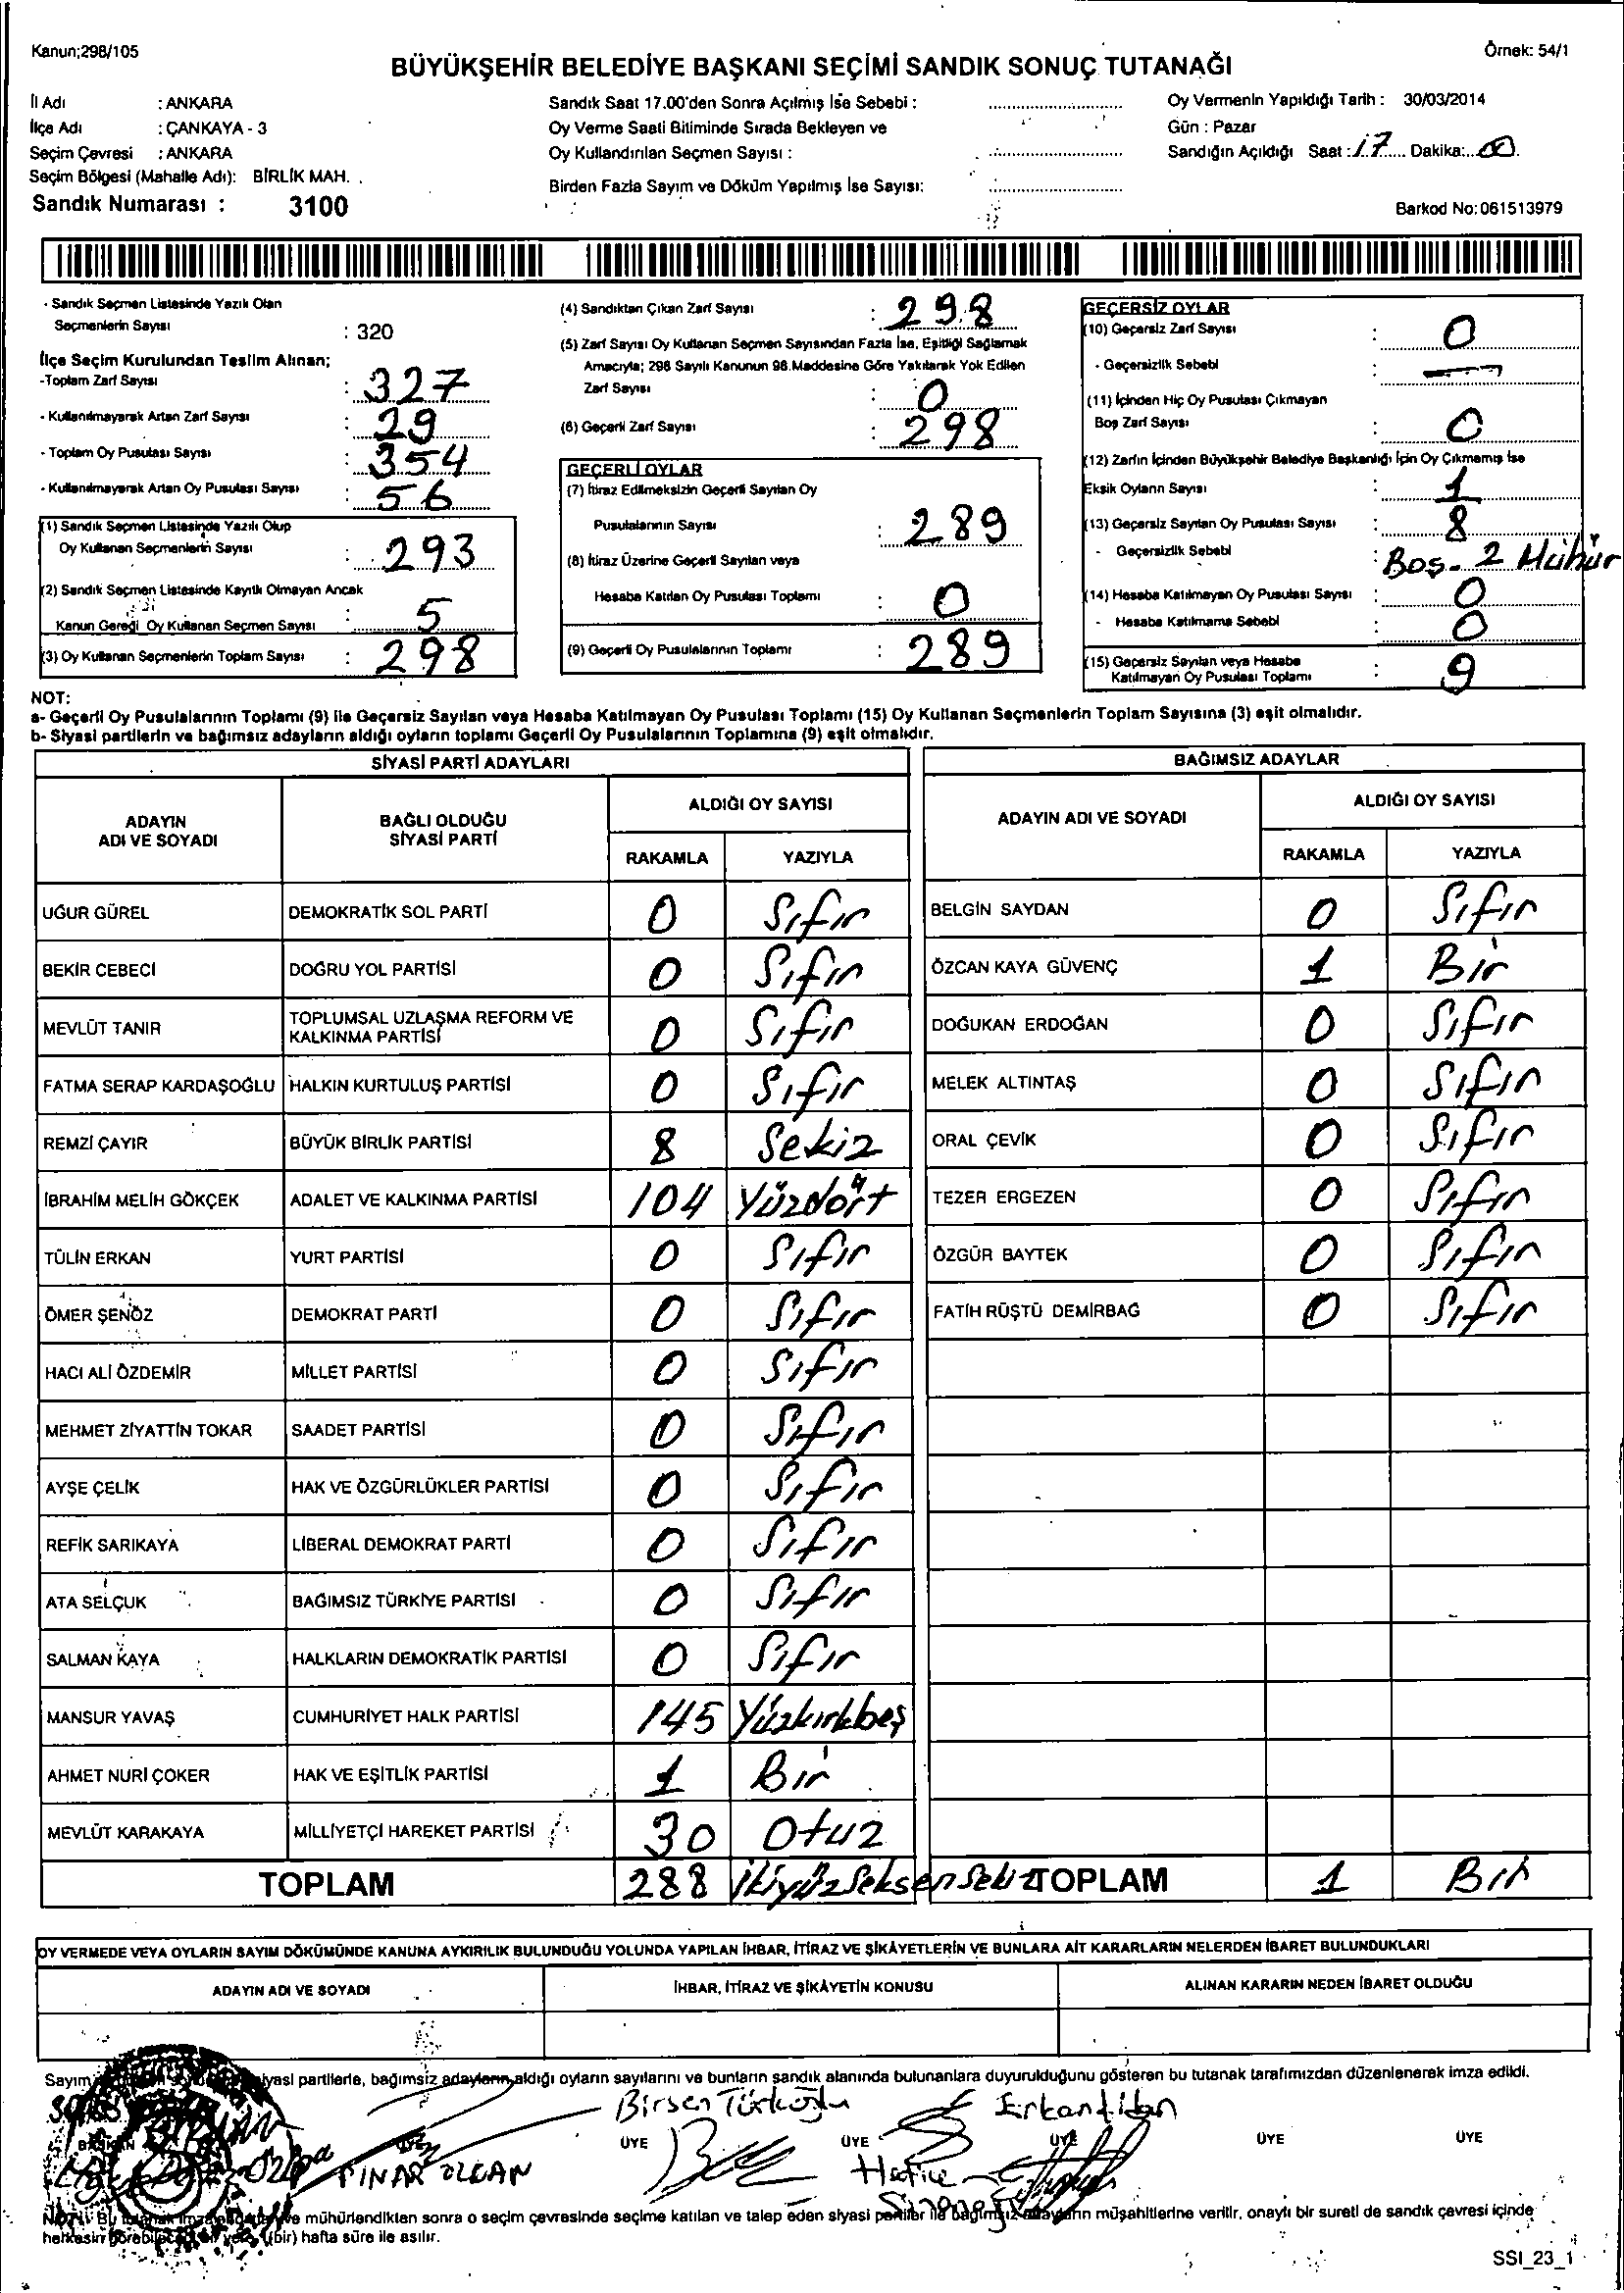 Kanun;298/105
Örnek: 54/1
BÜYÜKŞEHİR BELEDİYE BAŞKANI SEÇİMİ SANDIK SONUÇ TUTANAĞI
İl Adı : ANKARA
İlçe Adı : ÇANKAYA - 3
Seçim Çevresi : ANKARA
Seçim Bölgesi (Mahalle Adı): BİRLİK MAH.
Sandık Numarası : 3100
Sandık Saat 17.00'den Sonra Açılmış İse Sebebi :
Oy Verme Saati Bitiminde Sırada Bekleyen ve
Oy Kullandırılan Seçmen Sayısı :
Birden Fazla Sayım ve Döküm Yapılmış İse Sayısı:
Oy Vermenin Yapıldığı Tarih : 30/03/2014
Gün : Pazar
Sandığın Açıldığı Saat : 17 Dakika: 00
Barkod No:061513979
- Sandık Seçmen Listesinde Yazılı Olan
Seçmenlerin Sayısı : 320
İlçe Seçim Kurulundan Teslim Alınan;
-Toplam Zarf Sayısı : 327
- Kullanılmayarak Artan Zarf Sayısı : 29
- Toplam Oy Pusulası Sayısı : 354
- Kullanılmayarak Artan Oy Pusulası Sayısı : 56
(1) Sandık Seçmen Listesinde Yazılı Olup
Oy Kullanan Seçmenlerin Sayısı : 293
(2) Sandık Seçmen Listesinde Kayıtlı Olmayan Ancak
Kanun Gereği Oy Kullanan Seçmen Sayısı : 5
(3) Oy Kullanan Seçmenlerin Toplam Sayısı : 298
(4) Sandıktan Çıkan Zarf Sayısı : 298
(5) Zarf Sayısı Oy Kullanan Seçmen Sayısından Fazla İse, Eşitliği Sağlamak
Amacıyla; 298 Sayılı Kanunun 98.Maddesine Göre Yakılarak Yok Edilen
Zarf Sayısı : 0
(6) Geçerli Zarf Sayısı : 298
GEÇERLİ OYLAR
(7) İtiraz Edilmeksizin Geçerli Sayılan Oy
Pusulalarının Sayısı : 289
(8) İtiraz Üzerine Geçerli Sayılan veya
Hesaba Katılan Oy Pusulası Toplamı : 0
(9) Geçerli Oy Pusulalarının Toplamı : 289
GEÇERSİZ OYLAR
(10) Geçersiz Zarf Sayısı : 0
- Geçersizlik Sebebi : —
(11) İçinden Hiç Oy Pusulası Çıkmayan
Boş Zarf Sayısı : 0
(12) Zarfın İçinden Büyükşehir Belediye Başkanlığı İçin Oy Çıkmamış İse
Eksik Oyların Sayısı : 1
(13) Geçersiz Sayılan Oy Pusulası Sayısı : 8
- Geçersizlik Sebebi : Boş- 2 Mühür
(14) Hesaba Katılmayan Oy Pusulası Sayısı : 0
- Hesaba Katılmama Sebebi : 0
(15) Geçersiz Sayılan veya Hesaba
Katılmayan Oy Pusulası Toplamı : 9
NOT:
a- Geçerli Oy Pusulalarının Toplamı (9) ile Geçersiz Sayılan veya Hesaba Katılmayan Oy Pusulası Toplamı (15) Oy Kullanan Seçmenlerin Toplam Sayısına (3) eşit olmalıdır.
b- Siyasi partilerin ve bağımsız adayların aldığı oyların toplamı Geçerli Oy Pusulalarının Toplamına (9) eşit olmalıdır.
SİYASİ PARTİ ADAYLARI
ADAYIN ADI VE SOYADI BAĞLI OLDUĞU SİYASİ PARTİ ALDIĞI OY SAYISI
RAKAMLA YAZIYLA
UĞUR GÜREL DEMOKRATİK SOL PARTİ 0 Sıfır
BEKİR CEBECİ DOĞRU YOL PARTİSİ 0 Sıfır
MEVLÜT TANIR TOPLUMSAL UZLAŞMA REFORM VE KALKINMA PARTİSİ 0 Sıfır
FATMA SERAP KARDAŞOĞLU HALKIN KURTULUŞ PARTİSİ 0 Sıfır
REMZİ ÇAYIR BÜYÜK BİRLİK PARTİSİ 8 Sekiz
İBRAHİM MELİH GÖKÇEK ADALET VE KALKINMA PARTİSİ 104 Yüzdört
TÜLİN ERKAN YURT PARTİSİ 0 Sıfır
ÖMER ŞENÖZ DEMOKRAT PARTİ 0 Sıfır
HACI ALİ ÖZDEMİR MİLLET PARTİSİ 0 Sıfır
MEHMET ZİYATTİN TOKAR SAADET PARTİSİ 0 Sıfır
AYŞE ÇELİK HAK VE ÖZGÜRLÜKLER PARTİSİ 0 Sıfır
REFİK SARIKAYA LİBERAL DEMOKRAT PARTİ 0 Sıfır
ATA SELÇUK BAĞIMSIZ TÜRKİYE PARTİSİ 0 Sıfır
SALMAN KAYA HALKLARIN DEMOKRATİK PARTİSİ 0 Sıfır
MANSUR YAVAŞ CUMHURİYET HALK PARTİSİ 145 Yüzkırkbeş
AHMET NURİ ÇOKER HAK VE EŞİTLİK PARTİSİ 1 Bir
MEVLÜT KARAKAYA MİLLİYETÇİ HAREKET PARTİSİ 30 Otuz
TOPLAM 288 İkiyüzSeksenSekiz
BAĞIMSIZ ADAYLAR
ADAYIN ADI VE SOYADI ALDIĞI OY SAYISI
RAKAMLA YAZIYLA
BELGİN SAYDAN 0 Sıfır
ÖZCAN KAYA GÜVENÇ 1 Bir
DOĞUKAN ERDOĞAN 0 Sıfır
MELEK ALTINTAŞ 0 Sıfır
ORAL ÇEVİK 0 Sıfır
TEZER ERGEZEN 0 Sıfır
ÖZGÜR BAYTEK 0 Sıfır
FATİH RÜŞTÜ DEMİRBAĞ 0 Sıfır
TOPLAM 1 Bir
OY VERMEDE VEYA OYLARIN SAYIM DÖKÜMÜNDE KANUNA AYKIRILIK BULUNDUĞU YOLUNDA YAPILAN İHBAR, İTİRAZ VE ŞİKÂYETLERİN VE BUNLARA AİT KARARLARIN NELERDEN İBARET BULUNDUKLARI
ADAYIN ADI VE SOYADI İHBAR, İTİRAZ VE ŞİKÂYETİN KONUSU ALINAN KARARIN NEDEN İBARET OLDUĞU
Sayım siyasi partilerle, bağımsız adayların aldığı oyların sayılarını ve bunların sandık alanında bulunanlara duyurulduğunu gösteren bu tutanak tarafımızdan düzenlenerek imza edildi.
Birsen Türkoğlu
BAŞKAN ÜYE ÜYE ÜYE ÜYE ÜYE ÜYE
PINAR Hatice
NOT: Bu tutanak ve mühürlendikten sonra o seçim çevresinde seçime katılan ve talep eden siyasi partiler ile bağımsız adayların müşahitlerine verilir, onaylı bir sureti de sandık çevresi içinde
herkesin görebileceği bir yere (bir) hafta süre ile asılır.
SSI_23_1